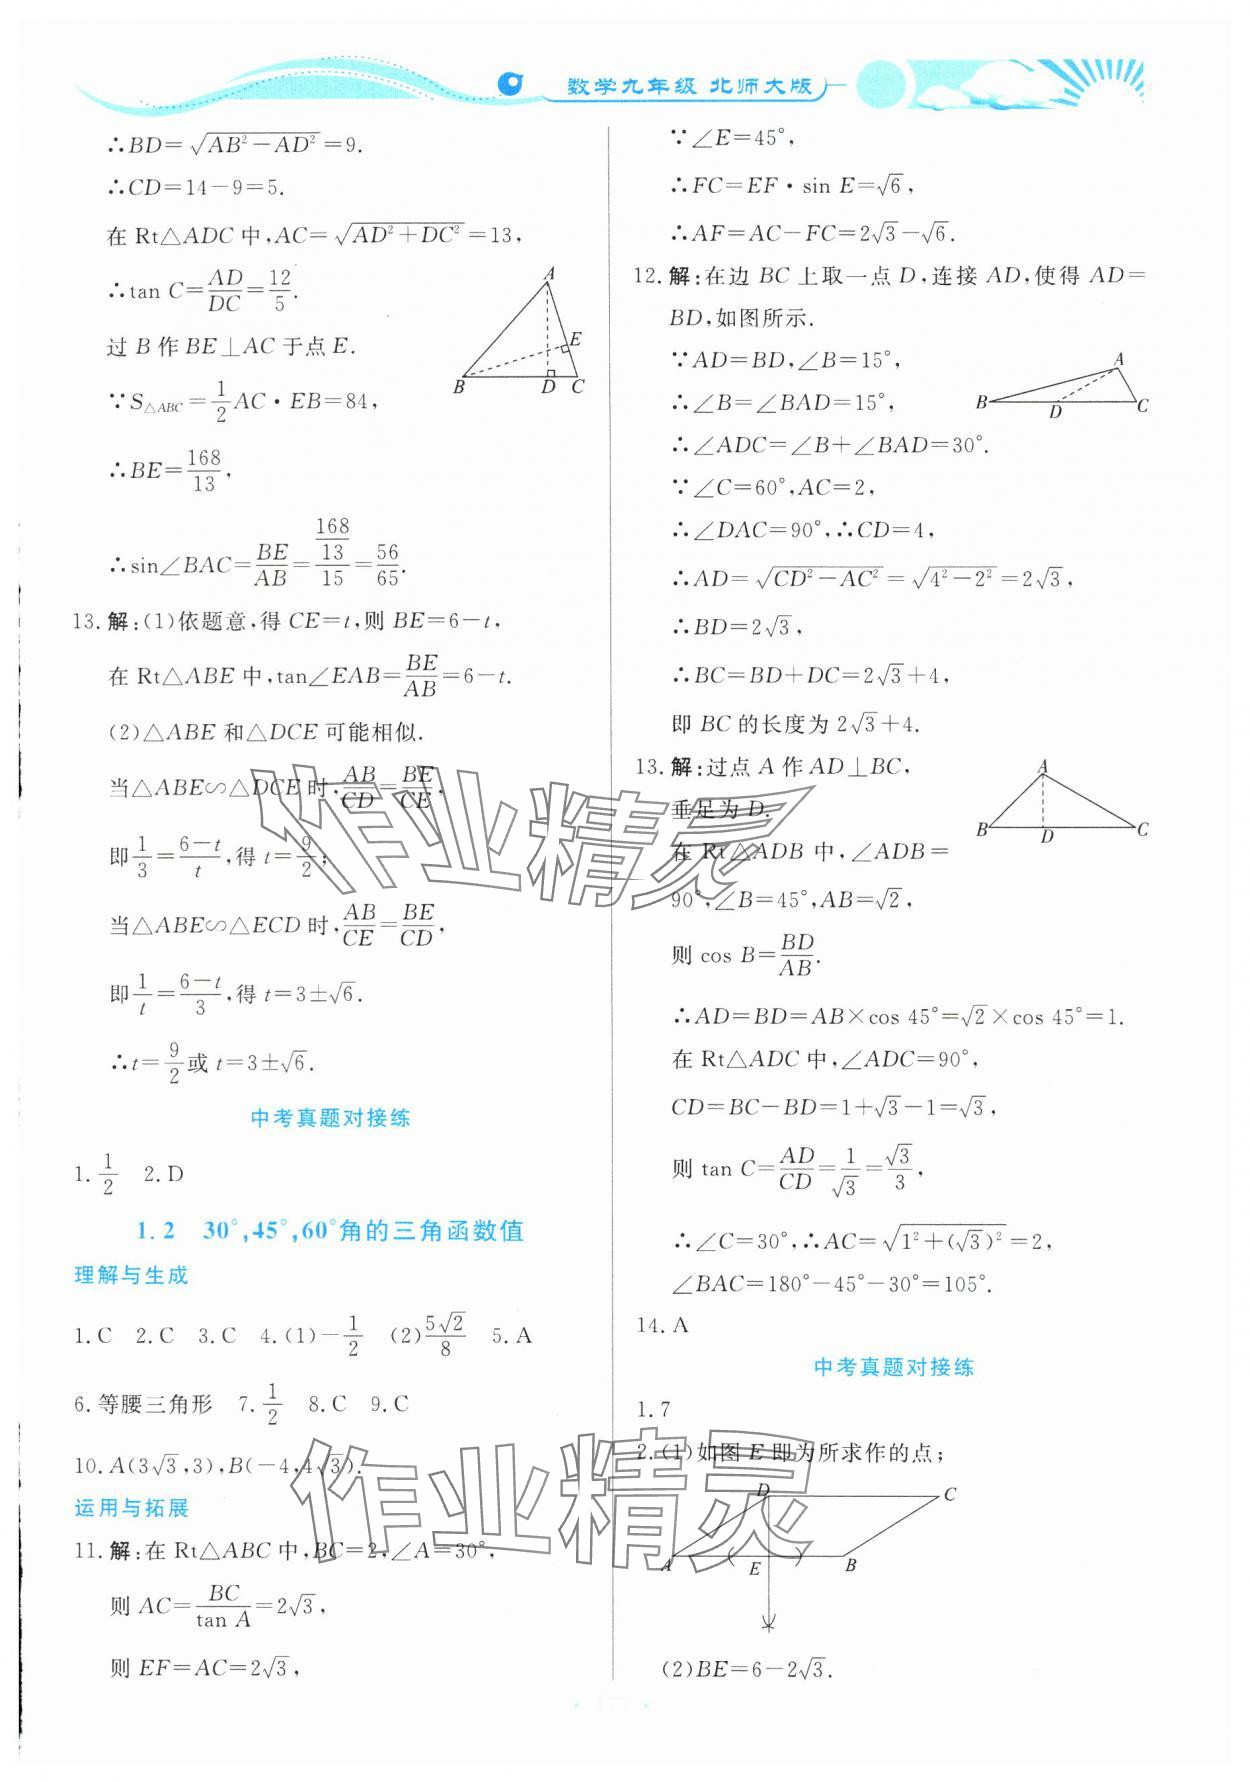 数学九年级 北师大版
∴BD=√(AB²-AD²)=9.
∴CD=14-9=5.
在 Rt△ADC 中,AC=√(AD²+DC²)=13,
∴tan C=AD/DC=12/5.
过 B 作 BE⊥AC 于点 E.
∵S△ABC=1/2 AC·EB=84,
∴BE=168/13,
∴sin∠BAC=BE/AB=(168/13)/15=56/65.
A
E
B
D
C
13.解:(1)依题意,得 CE=t,则 BE=6-t,
在 Rt△ABE 中,tan∠EAB=BE/AB=6-t.
(2)△ABE 和△DCE 可能相似.
当△ABE∽△DCE 时,AB/CD=BE/CE,
即1/3=(6-t)/t,得 t=9/2;
当△ABE∽△ECD 时,AB/CE=BE/CD,
即1/t=(6-t)/3,得 t=3±√6.
∴t=9/2或 t=3±√6.
中考真题对接练
1.1/2 2.D
1.2 30°,45°,60°角的三角函数值
理解与生成
1.C 2.C 3.C 4.(1)-1/2 (2)5√2/8 5.A
6.等腰三角形 7.1/2 8.C 9.C
10.A(3√3,3),B(-4,4√3).
运用与拓展
11.解:在 Rt△ABC 中,BC=2,∠A=30°,
则 AC=BC/tan A=2√3,
则 EF=AC=2√3,
∵∠E=45°,
∴FC=EF·sin E=√6,
∴AF=AC-FC=2√3-√6.
12.解:在边 BC 上取一点 D,连接 AD,使得 AD=
BD,如图所示.
∵AD=BD,∠B=15°,
∴∠B=∠BAD=15°,
∴∠ADC=∠B+∠BAD=30°.
∵∠C=60°,AC=2,
∴∠DAC=90°,∴CD=4,
∴AD=√(CD²-AC²)=√(4²-2²)=2√3,
∴BD=2√3,
∴BC=BD+DC=2√3+4,
即 BC 的长度为 2√3+4.
A
B
D
C
13.解:过点 A 作 AD⊥BC,
垂足为 D.
在 Rt△ADB 中,∠ADB=
90°,∠B=45°,AB=√2,
则 cos B=BD/AB.
∴AD=BD=AB×cos 45°=√2×cos 45°=1.
在 Rt△ADC 中,∠ADC=90°,
CD=BC-BD=1+√3-1=√3,
则 tan C=AD/CD=1/√3=√3/3,
∴∠C=30°,∴AC=√(1²+(√3)²)=2,
∠BAC=180°-45°-30°=105°.
A
B
D
C
14.A
中考真题对接练
1.7
2.(1)如图 E 即为所求作的点;
D
C
A
E
B
(2)BE=6-2√3.
作业精灵
作业精灵